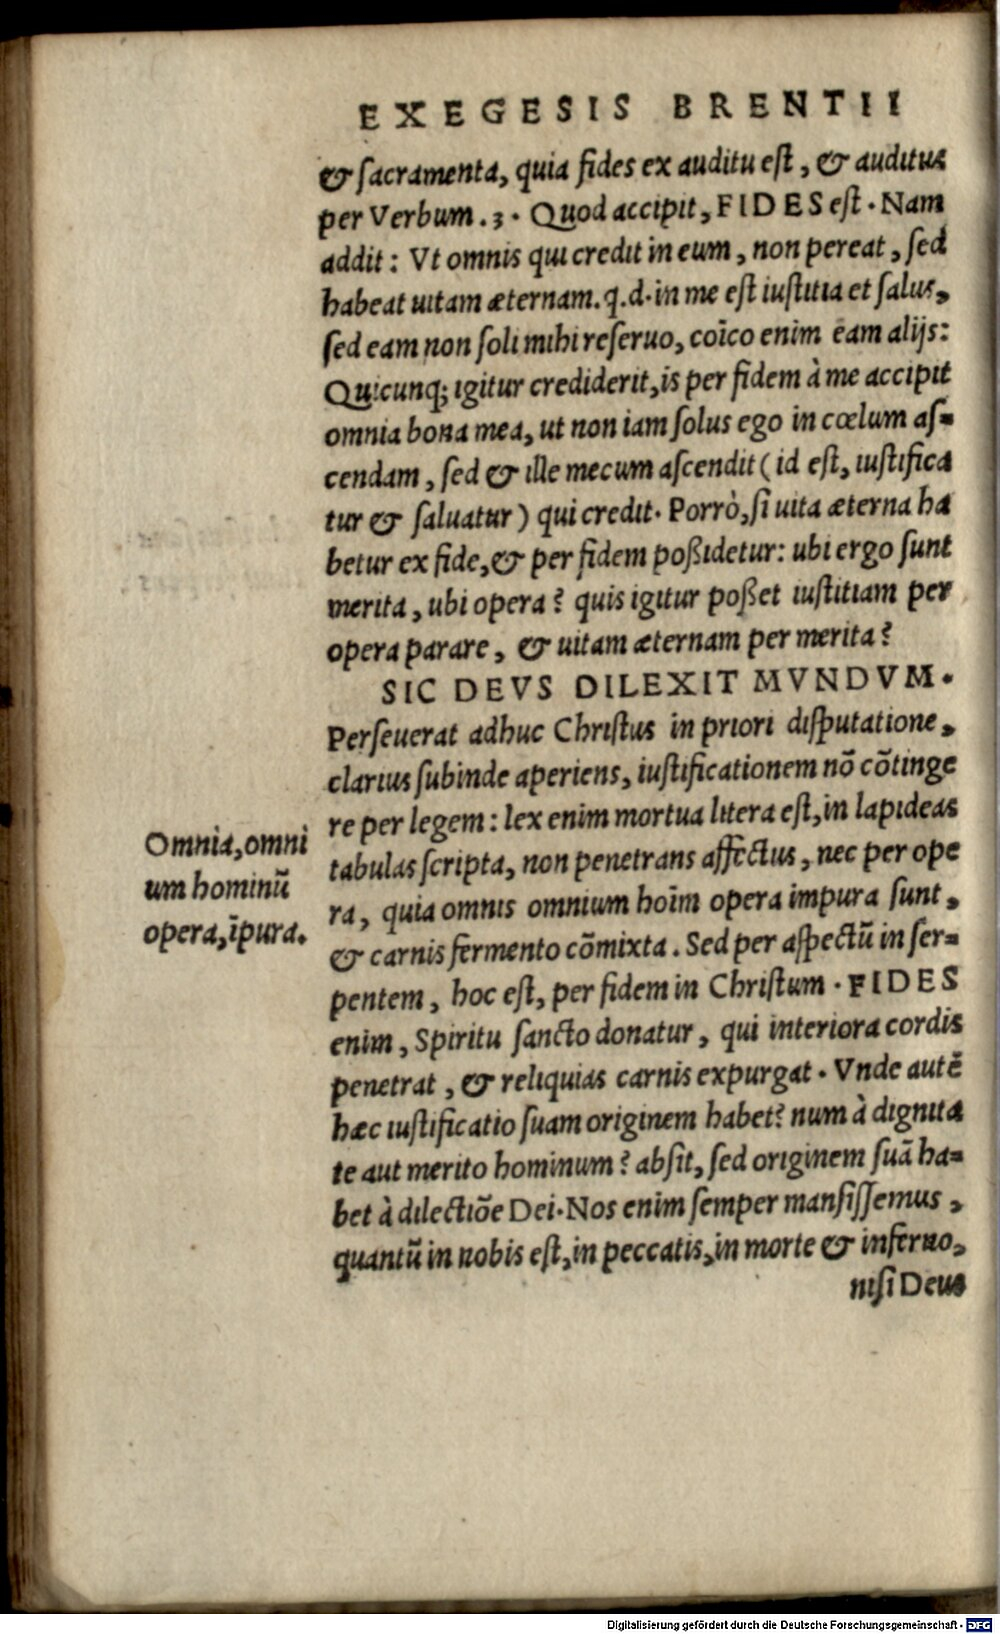 EXEGESIS BRENTII
& sacramenta, quia fides ex auditu est, & auditus
per Verbum. 3. Quod accipit, FIDES est. Nam
addit: Vt omnis qui credit in eum, non pereat, sed
habeat uitam æternam. q.d. in me est iustitia et salus,
sed eam non soli mihi reseruo, coīco enim eam alijs:
Quicunq; igitur crediderit, is per fidem à me accipit
omnia bona mea, ut non iam solus ego in cœlum as=
cendam, sed & ille mecum ascendit (id est, iustifica
tur & saluatur) qui credit. Porrò, si uita æterna ha
betur ex fide, & per fidem poßidetur: ubi ergo sunt
merita, ubi opera? quis igitur poßet iustitiam per
opera parare, & uitam æternam per merita?
SIC DEVS DILEXIT MVNDVM.
Perseuerat adhuc Christus in priori disputatione,
clarius subinde aperiens, iustificationem nō cōtinge
re per legem: lex enim mortua litera est, in lapideas
tabulas scripta, non penetrans affectus, nec per ope
ra, quia omnis omnium hoīm opera impura sunt,
& carnis fermento cōmixta. Sed per aspectū in ser=
pentem, hoc est, per fidem in Christum. FIDES
enim, Spiritu sancto donatur, qui interiora cordis
penetrat, & reliquias carnis expurgat. Vnde autē
hæc iustificatio suam originem habet? num à dignita
te aut merito hominum? absit, sed originem suā ha=
bet à dilectiōe Dei. Nos enim semper mansissemus,
quantū in nobis est, in peccatis, in morte & inferno,
nisi Deus
Omnia, omni
um hominū
opera, īpura.
Digitalisierung gefördert durch die Deutsche Forschungsgemeinschaft - DFG